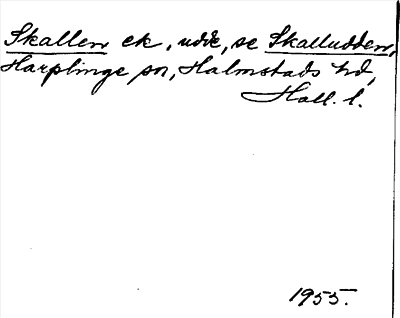 Skallen ek. udde, se Skalludden,
Harplinge sn, Halmstads hd,
Hall. l.
1955.